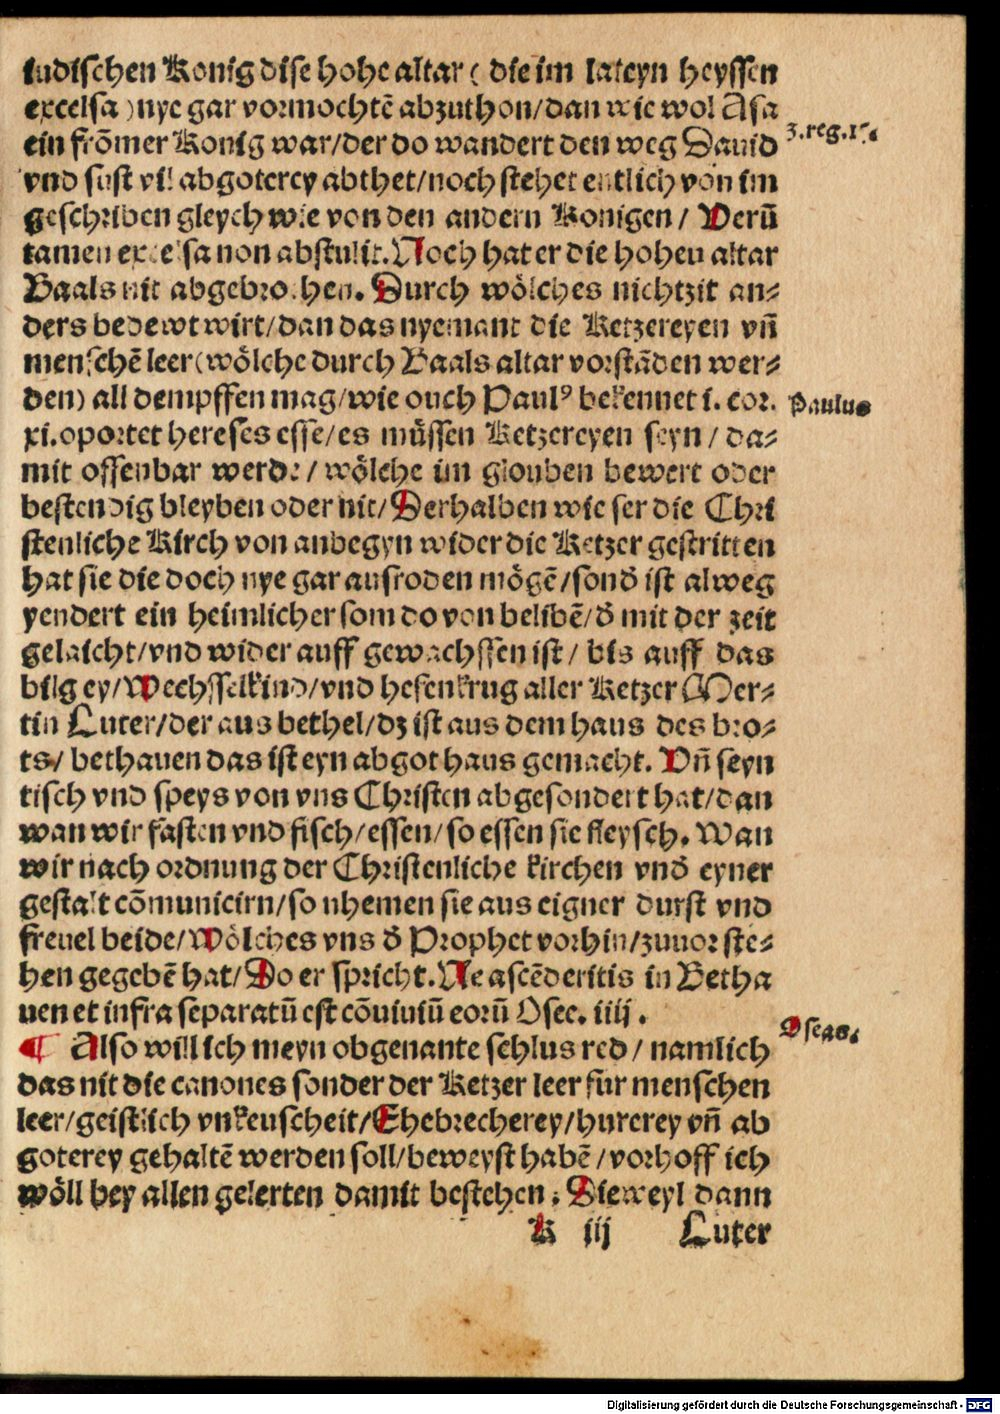 iudischen Konig dise hohe altar ( die im lateyn heyssen
excelsa ) nye gar vormochtē abzuthon/dan wie wol Asa
ein frõmer Konig war/der do wandert den weg Dauid
3.reg.15.
vnd sust vil abgoterey abthet/noch stehet entlich von im
geschriben gleych wie von den andern Konigen/ Verū
tamen excelsa non abstulit. Noch hat er die hohen altar
Baals nit abgebrochen. Durch wölches nichtzit an⸗
ders bedewt wirt/dan das nyemant die Ketzereyen vn̄
menschē leer(wölche durch Baals altar vorstāden wer⸗
den) all dempffen mag/wie ouch Paulꝰ bekennet i. cor.
Paulus
xi.oportet hereses esse/es müssen Ketzereyen seyn/ da⸗
mit offenbar werde/ wölche im glouben bewert oder
bestendig bleyben oder nit/ Derhalben wie ser die Chri
stenliche Kirch von anbegyn wider die Ketzer gestritten
hat sie die doch nye gar ausroden mögē/sond̄ ist alweg
yendert ein heimlicher som do von belibē/d̄ mit der zeit
gelaicht/vnd wider auff gewachssen ist/ bis auff das
bilg ey/Wechsselkind/vnd hefenkrug aller Ketzer Mer⸗
tin Luter/der aus bethel/dz ist aus dem haus des bro⸗
ts/ bethauen das ist eyn abgot haus gemacht. Vn̄ seyn
tisch vnd speys von vns Christen abgesondert hat/dan
wan wir fasten vnd fisch/essen/so essen sie fleysch. Wan
wir nach ordnung der Christenliche kirchen vnd̄ eyner
gestalt cõmunicirn/so nhemen sie aus eigner durst vnd
freuel beide/Wölches vns d̄ Prophet vorhin/zuuor ste⸗
hen gegebē hat/Do er spricht. Ne ascēderitis in Betha
uen et infra separatū est cõuiuiū eorū Osec. iiij .
Oseas.
¶ Also will ich meyn obgenante schlus red/ namlich
das nit die canones sonder der Ketzer leer fur menschen
leer/geistlich vnkeuscheit/Ehebrecherey/hurerey vn̄ ab
goterey gehaltē werden soll/beweyst habē/vorhoff ich
wöll bey allen gelerten damit bestehen. Dieweyl dann
K iij Luter
Digitalisierung gefördert durch die Deutsche Forschungsgemeinschaft - DFG